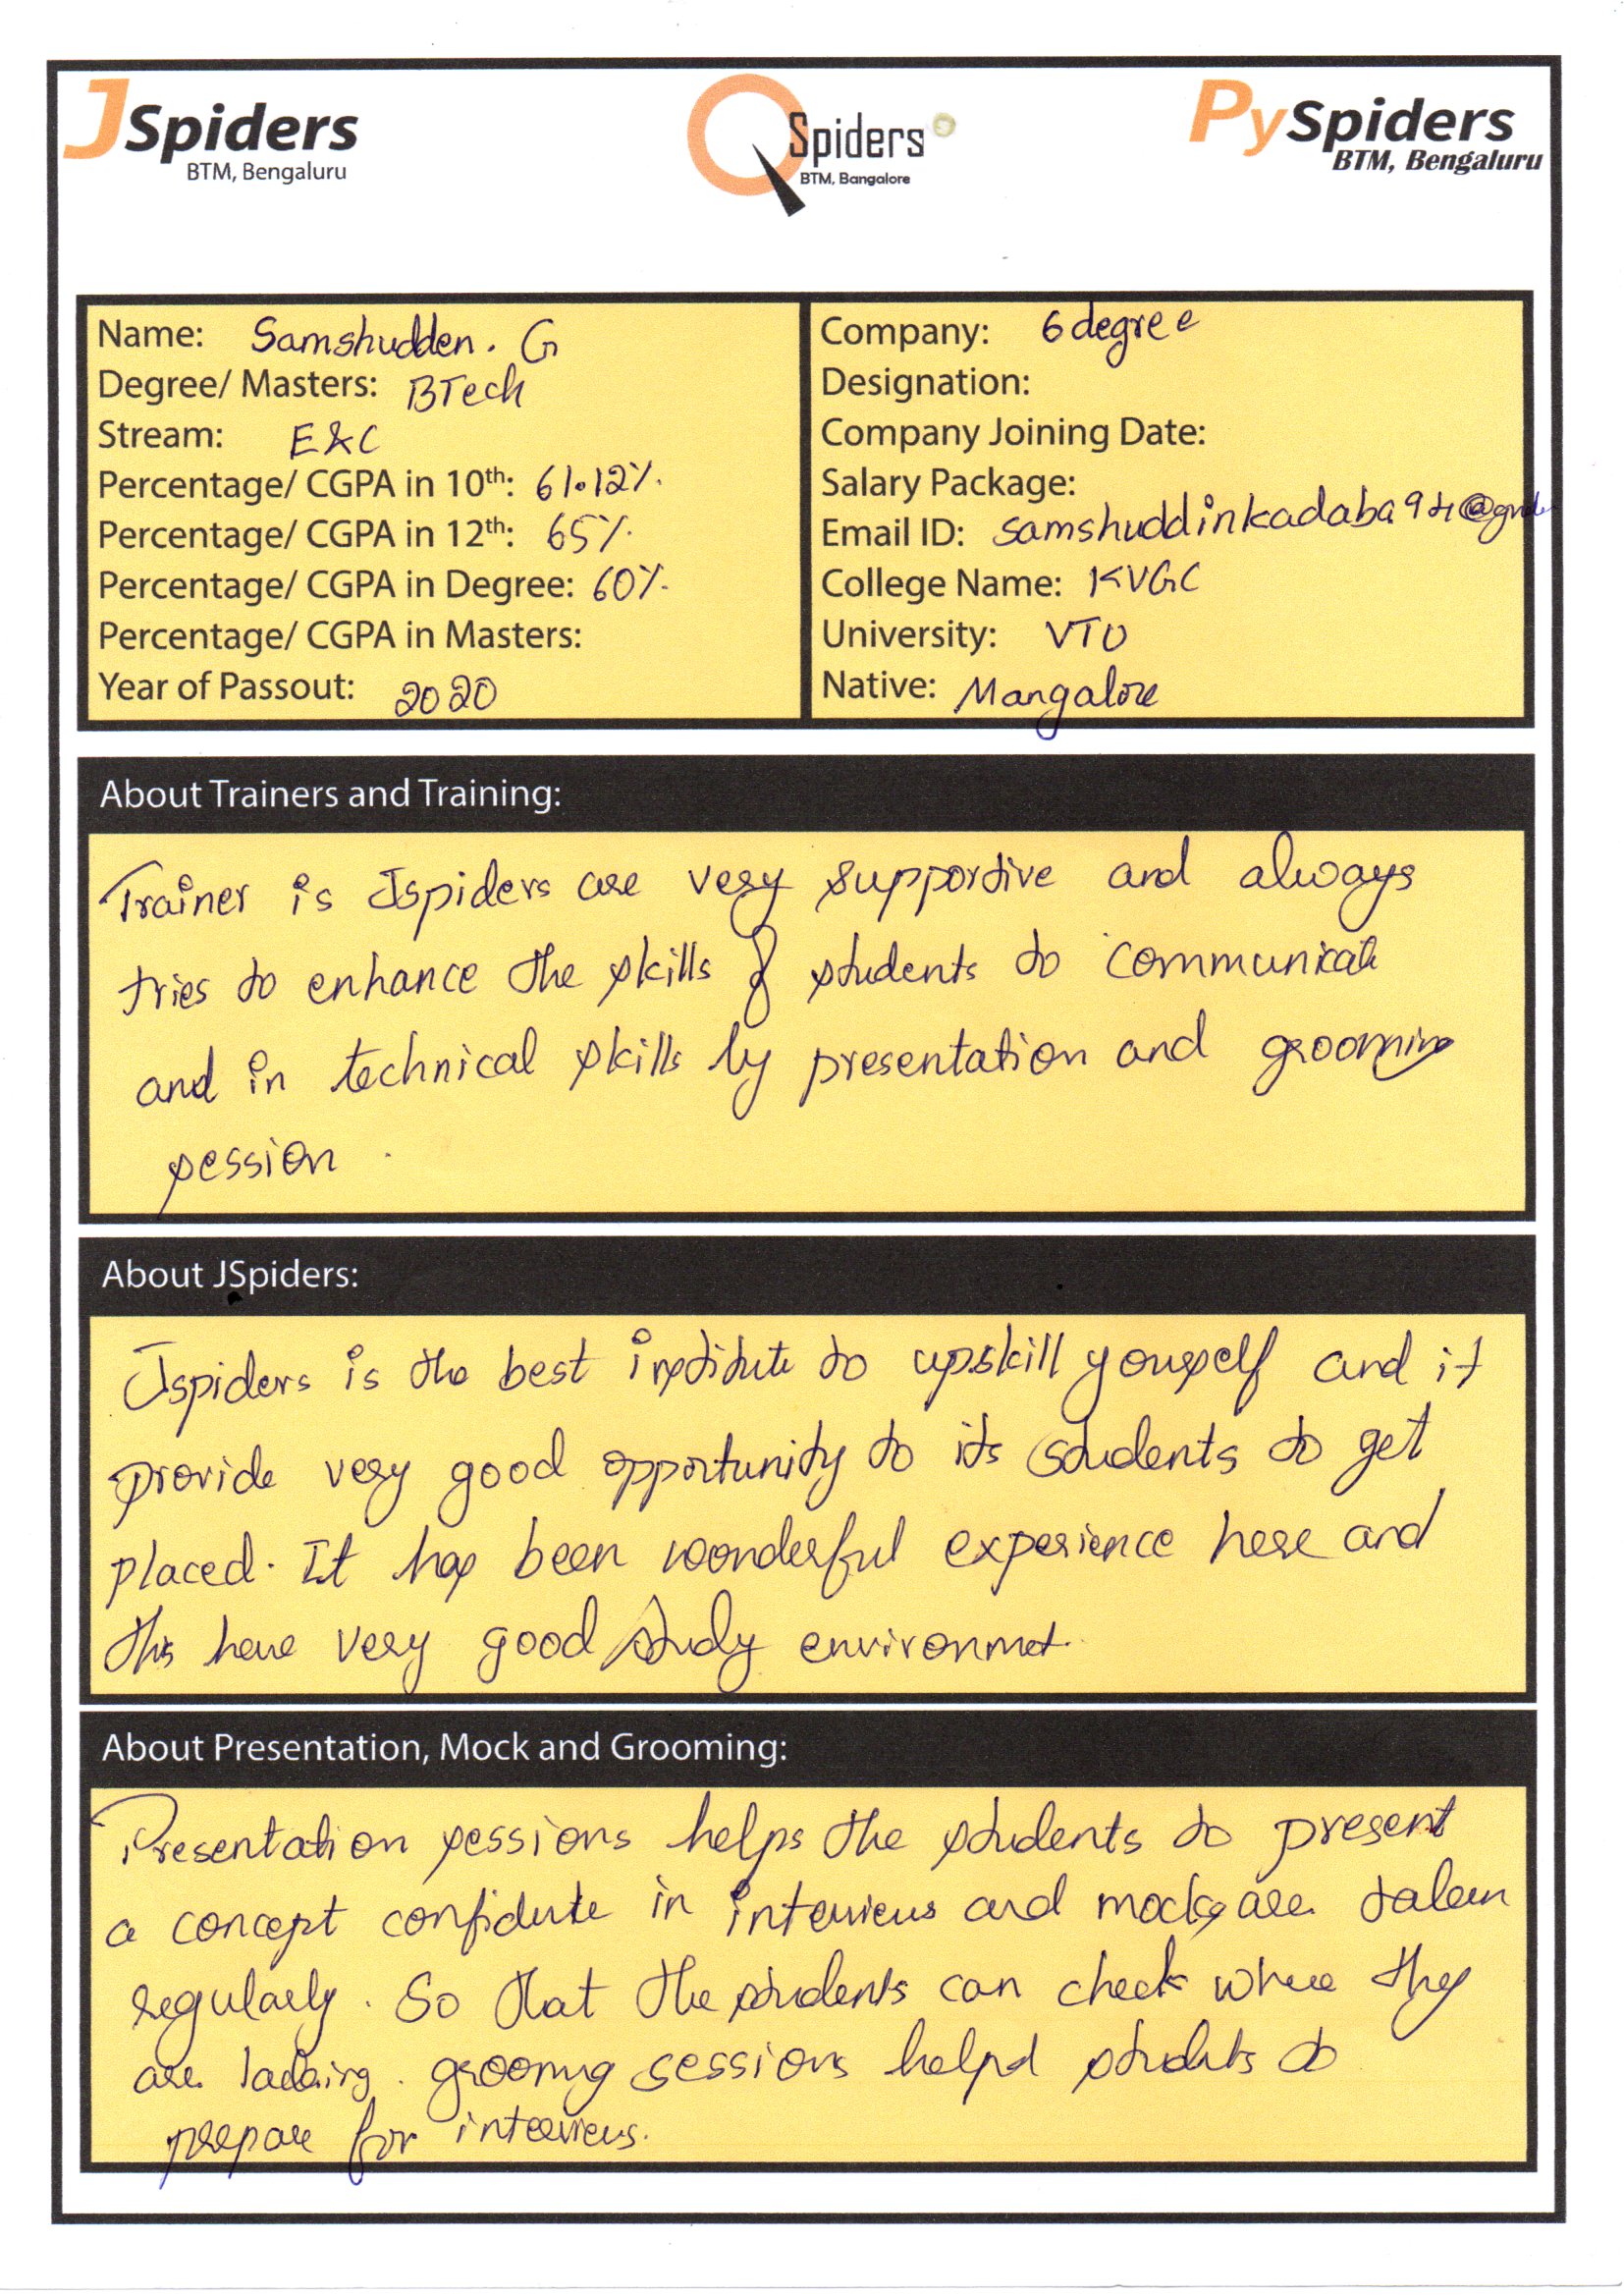 JSpiders
BTM, Bengaluru
QSpiders
BTM, Bangalore
PySpiders
BTM, Bengaluru
Name: Samshudden. G
Degree/ Masters: BTech
Stream: E&C
Percentage/ CGPA in 10th: 61.12%.
Percentage/ CGPA in 12th: 65%.
Percentage/ CGPA in Degree: 60%.
Percentage/ CGPA in Masters:
Year of Passout: 2020
Company: 6degree
Designation:
Company Joining Date:
Salary Package:
Email ID:
College Name: KVGC
University: VTU
Native: Mangalore
About Trainers and Training:
Trainer is Jspiders are very supportive and always
tries to enhance the skills of students to communicate
and in technical skills by presentation and grooming
session.
About JSpiders:
Jspiders is the best institute to upskill yourself and it
provide very good opportunity to its students to get
placed. It has been wonderful experience here and
this have very good study environmet.
About Presentation, Mock and Grooming:
Presentation sessions helps the students to present
a concept confidute in interviews and mocks are taken
regularly. So that the students can check where they
are lacking. groomng sessions helpd students to
prepare for interviews.